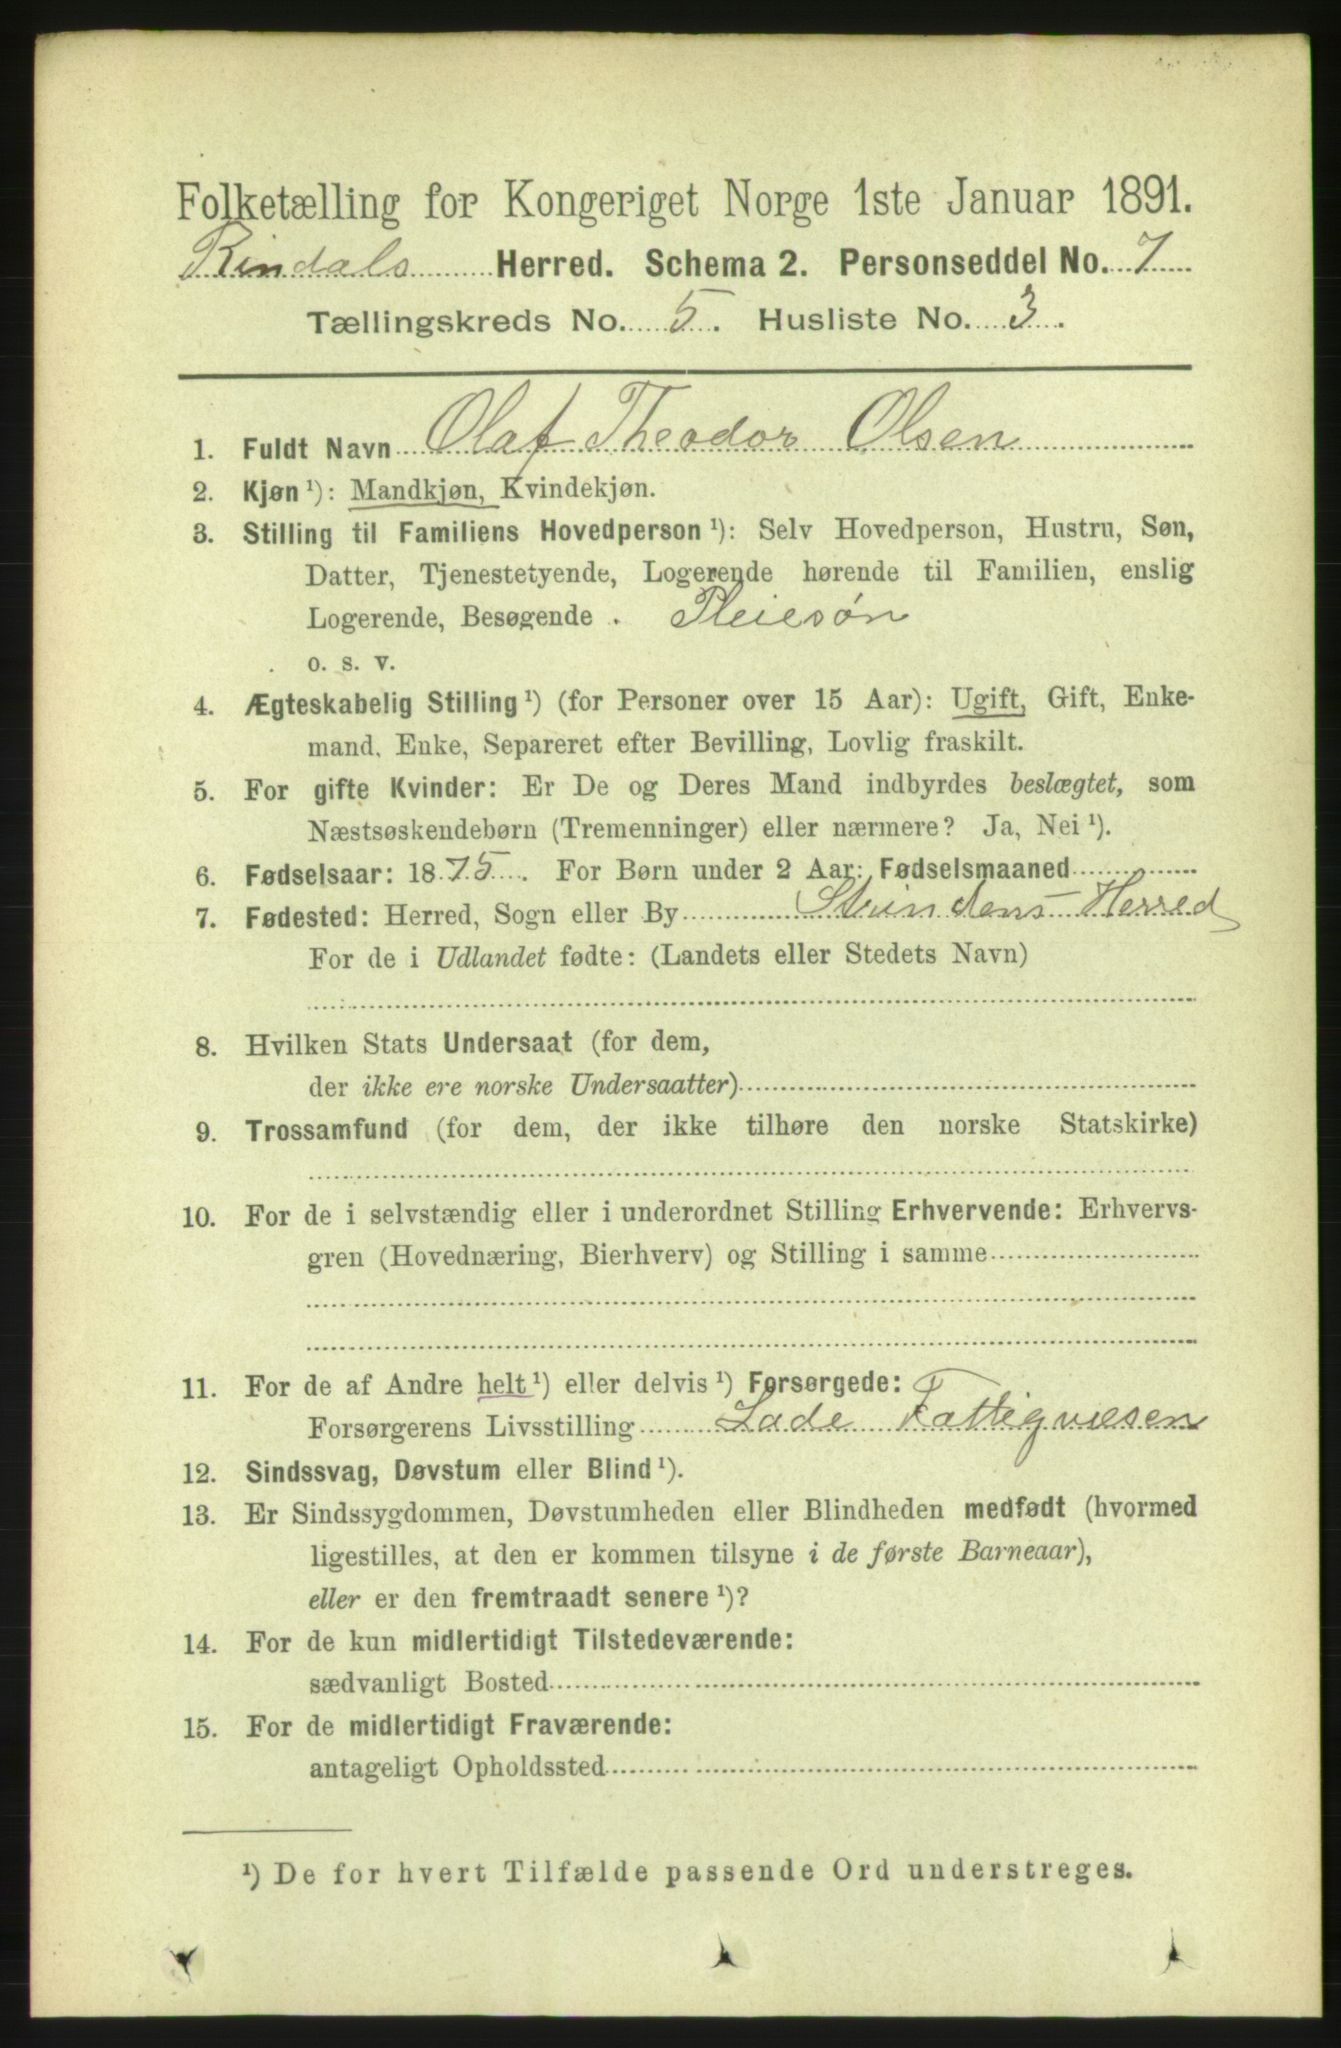 Folketælling for Kongeriget Norge 1ste Januar 1891.
Rindals Herred. Schema 2. Personseddel No. 7
Tællingskreds No. 5. Husliste No. 3.
1. Fuldt Navn Olaf Theodor Olsen
2. Kjøn ¹): Mandkjøn, Kvindekjøn.
3. Stilling til Familiens Hovedperson ¹): Selv Hovedperson, Hustru, Søn,
Datter, Tjenestetyende, Logerende hørende til Familien, enslig
Logerende, Besøgende . Pleiesøn
o. s. v.
4. Ægteskabelig Stilling ¹) (for Personer over 15 Aar): Ugift, Gift, Enke-
mand, Enke, Separeret efter Bevilling, Lovlig fraskilt.
5. For gifte Kvinder: Er De og Deres Mand indbyrdes beslægtet, som
Næstsøskendebørn (Tremenninger) eller nærmere? Ja, Nei ¹).
6. Fødselsaar: 1875. For Børn under 2 Aar: Fødselsmaaned
7. Fødested: Herred, Sogn eller By Strindens Herred
For de i Udlandet fødte: (Landets eller Stedets Navn)
8. Hvilken Stats Undersaat (for dem,
der ikke ere norske Undersaatter)
9. Trossamfund (for dem, der ikke tilhøre den norske Statskirke)
10. For de i selvstændig eller i underordnet Stilling Erhvervende: Erhvervs-
gren (Hovednæring, Bierhverv) og Stilling i samme
11. For de af Andre helt ¹) eller delvis ¹) Forsørgede:
Forsørgerens Livsstilling Lade Fattigvæsen
12. Sindssvag, Døvstum eller Blind ¹).
13. Er Sindssygdommen, Døvstumheden eller Blindheden medfødt (hvormed
ligestilles, at den er kommen tilsyne i de første Barneaar),
eller er den fremtraadt senere ¹)?
14. For de kun midlertidigt Tilstedeværende:
sædvanligt Bosted
15. For de midlertidigt Fraværende:
antageligt Opholdssted
¹) De for hvert Tilfælde passende Ord understreges.